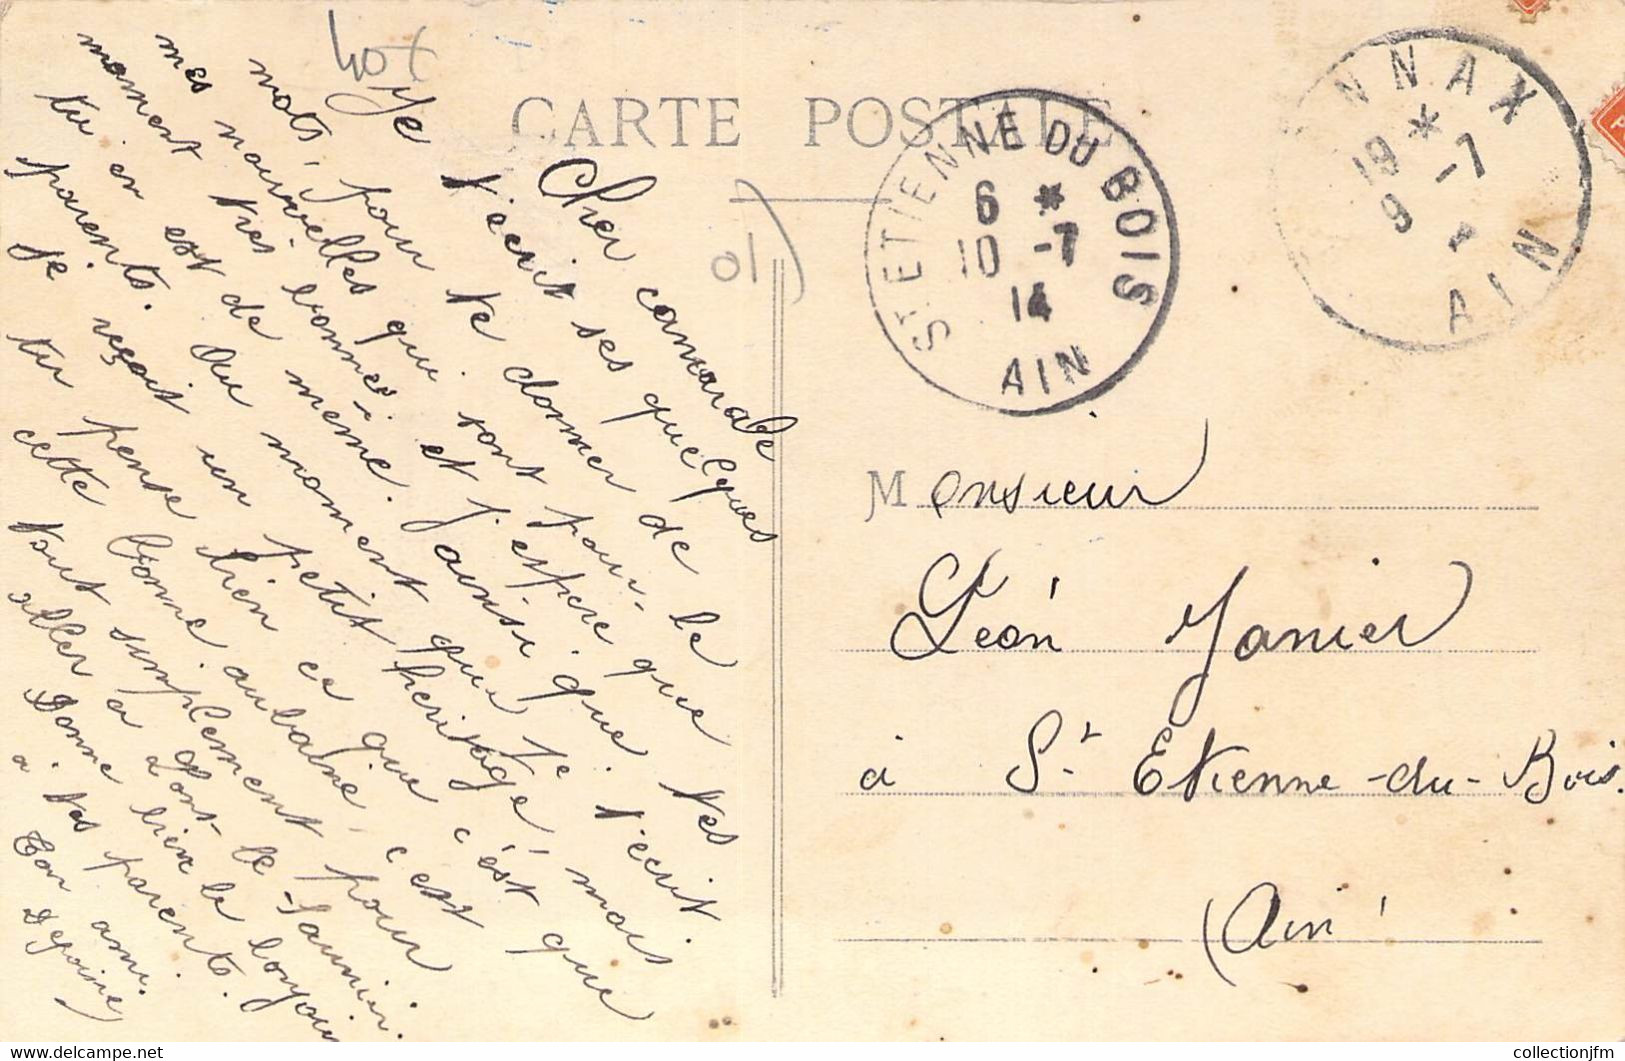 CARTE POSTALE
Cher camarade
Je t'écrit ses quelques
mots, pour te donner de
mes nouvelles qui sont pour le
moment très bonnes et j'espère que tes
tu en est de même. ainsi que
parents. Au moment que je t'écrit.
je reçoit un petit heritage, mais
tu pense bien ce que c'est que
cette bonne aubaine, c'est
tout simplement pour
aller a Lons-le-Saunier.
Donne bien le bonjour
à tes parents.
Ton ami.
ST ETIENNE DU BOIS
6 *
10 -7
14
AIN
NNAX
19 *
9 -7
AIN
Monsieur
Léon Janier
à St Etienne-du-Bois.
(Ain)
collectionjfm